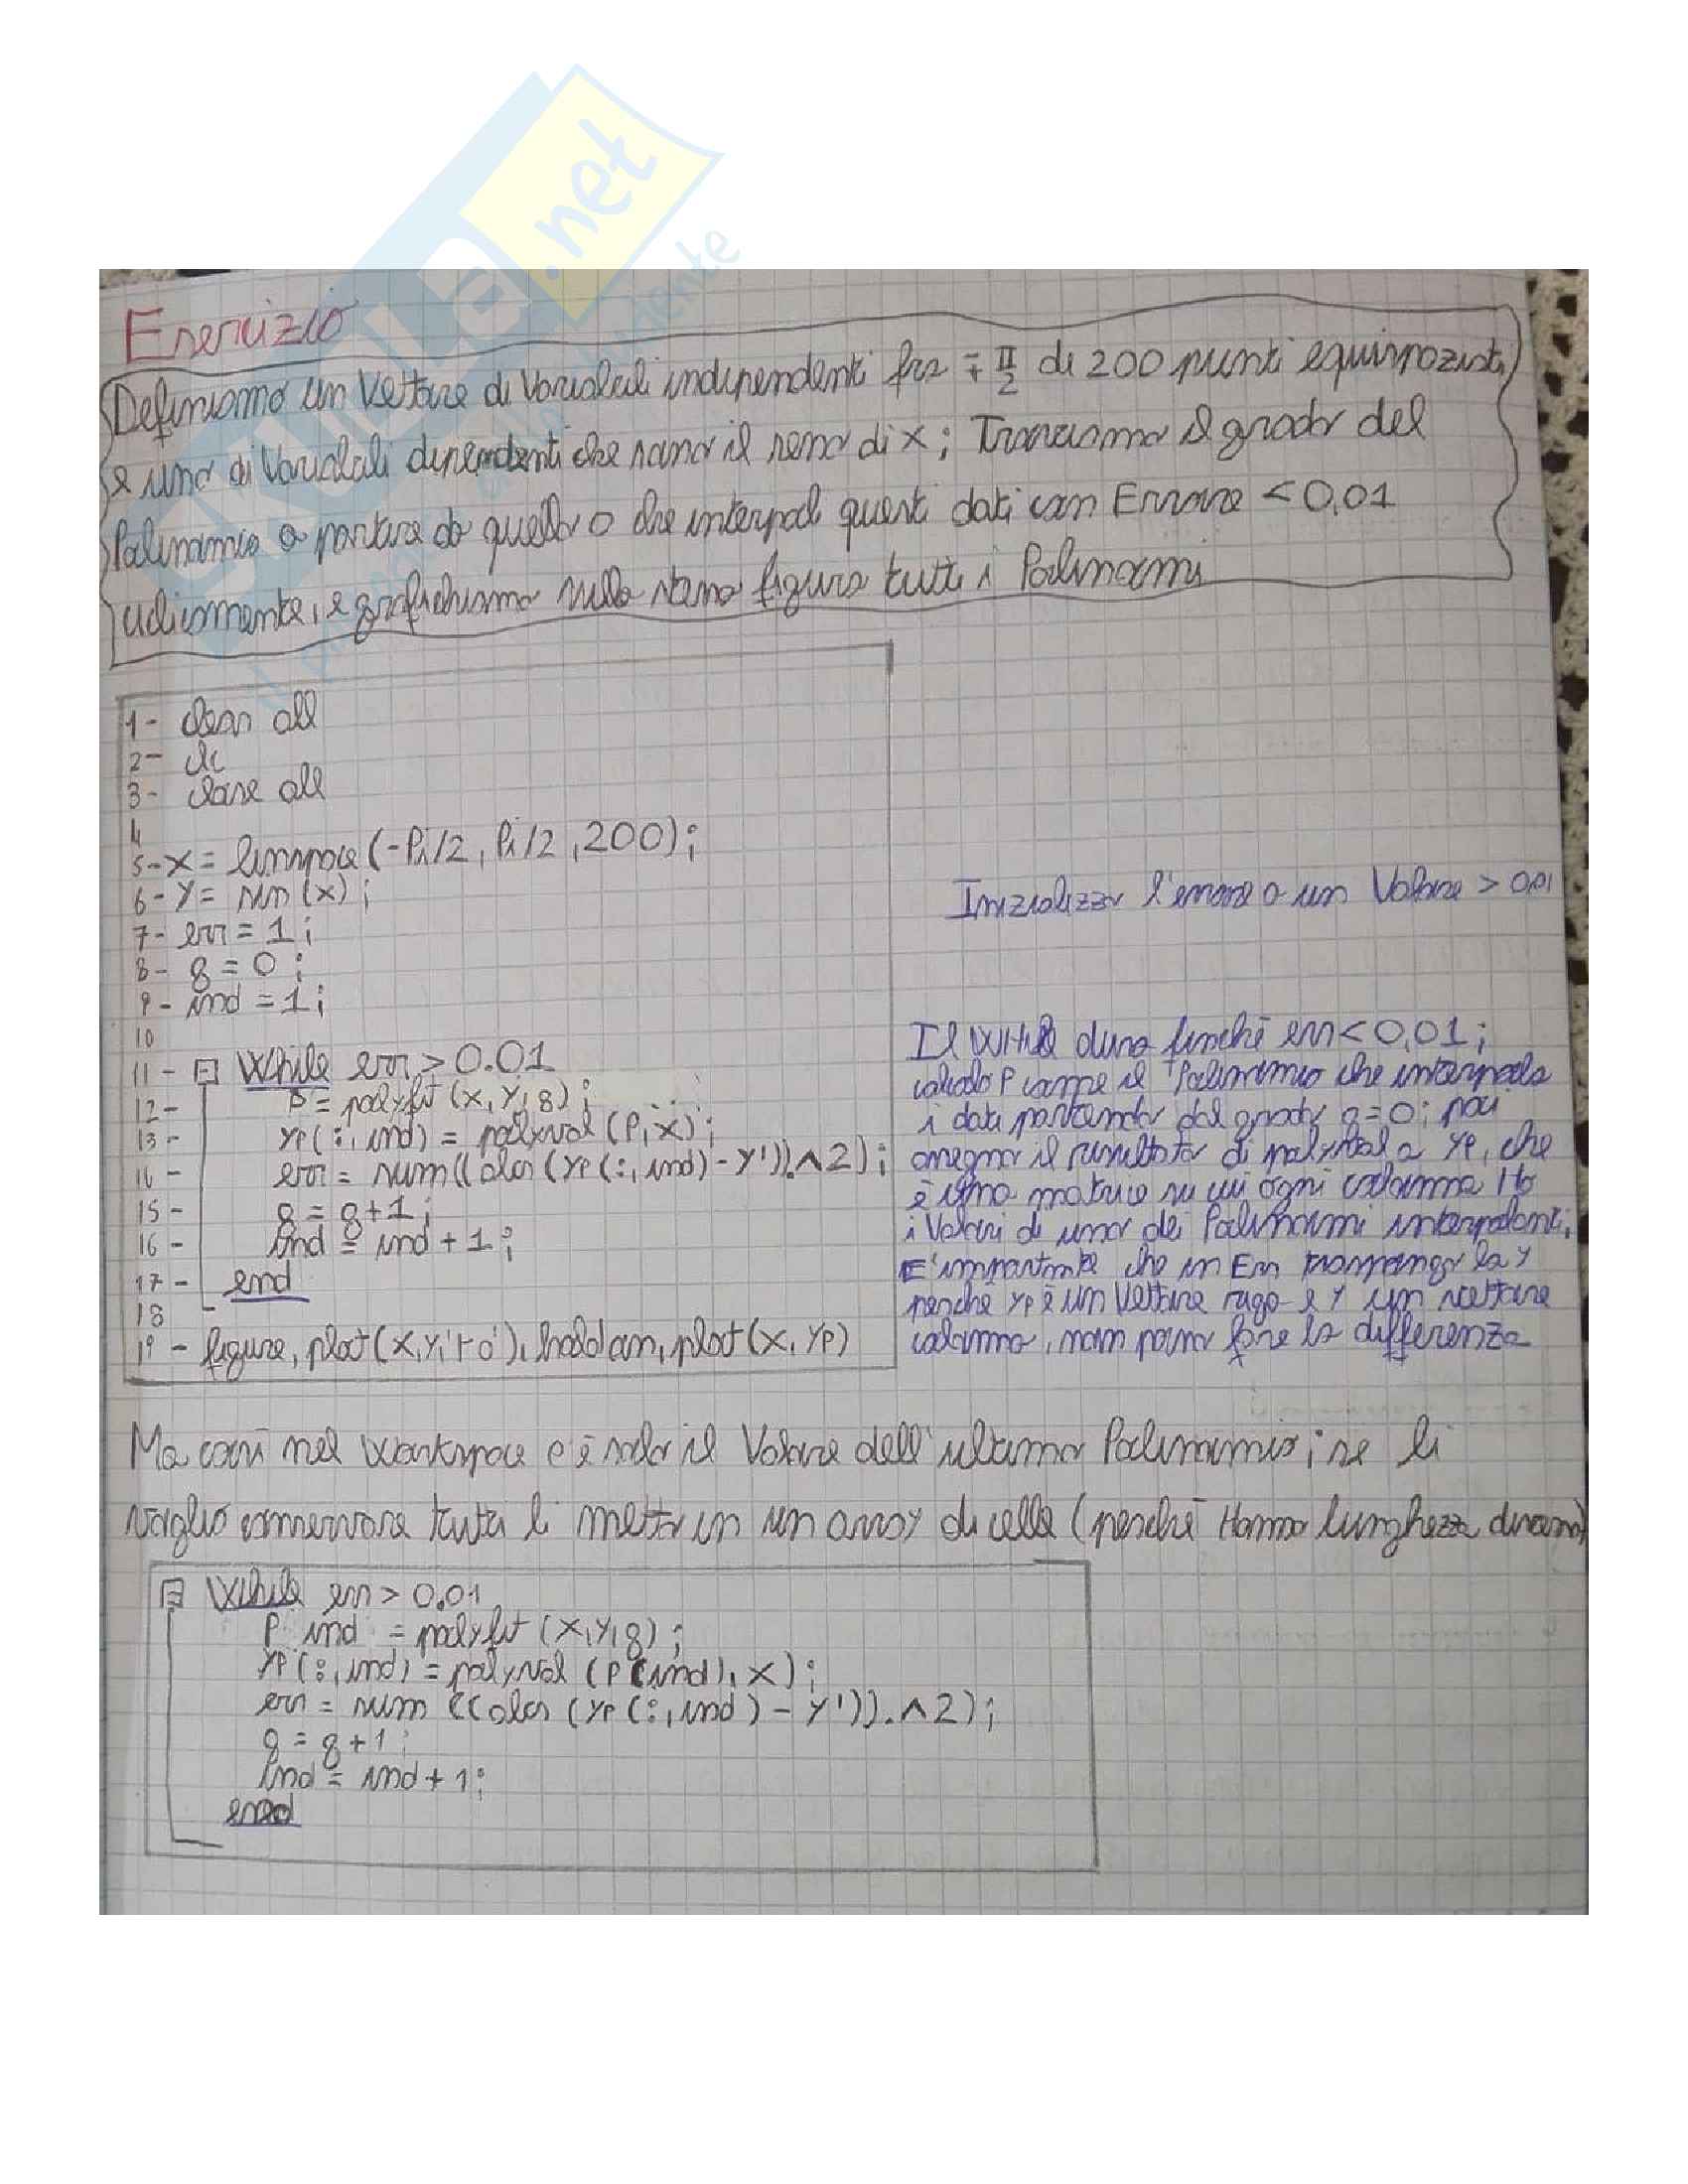 SKUOLA.net
Esercizio
Definiamo un Vettore di Variabili indipendenti fra ∓ π/2 di 200 punti equispaziati,
e uno di Variabili dipendenti che sono il seno di x; Troviamo il grado del
Polinomio a partire da quello 0 che interpoli questi dati con Errore < 0,01
e grafichiamo nella stessa figura tutti i Polinomi
1- clear all
2- clc
3- close all
4
5- x = linspace(-Pi/2, Pi/2, 200);
6- y = sin(x);
7- err = 1;
8- g = 0;
9- ind = 1;
10
11- While err > 0.01
12- P = polyfit(x,y,g);
13- yp(:,ind) = polyval(P,x);
14- err = sum((abs(yp(:,ind)-y')).^2);
15- g = g+1;
16- ind = ind+1;
17- end
18
19- figure, plot(x,y,'ro'), hold on, plot(x,yp)
Inizializzo l'errore a un Valore > 0,01
Il While dura finché err < 0,01;
calcolo P come il Polinomio che interpola
i dati partendo dal grado g=0; poi
assegno il risultato di polyval a yp, che
è una matrice su cui ogni colonna Ho
i Valori di uno dei Polinomi interpolanti,
E' importante che in Err trasponga la y
perché yp è un Vettore riga e y un vettore
colonna, non posso fare la differenza
Ma così nel Workspace c'è solo il Valore dell'ultimo Polinomio; se li
voglio conservare tutti li metto in un array di celle (perché Hanno lunghezza diversa)
While err > 0.01
P ind = polyfit(x,y,g);
yp(:,ind) = polyval(P(ind),x);
err = sum((abs(yp(:,ind)-y')).^2);
g = g+1;
ind = ind+1;
end